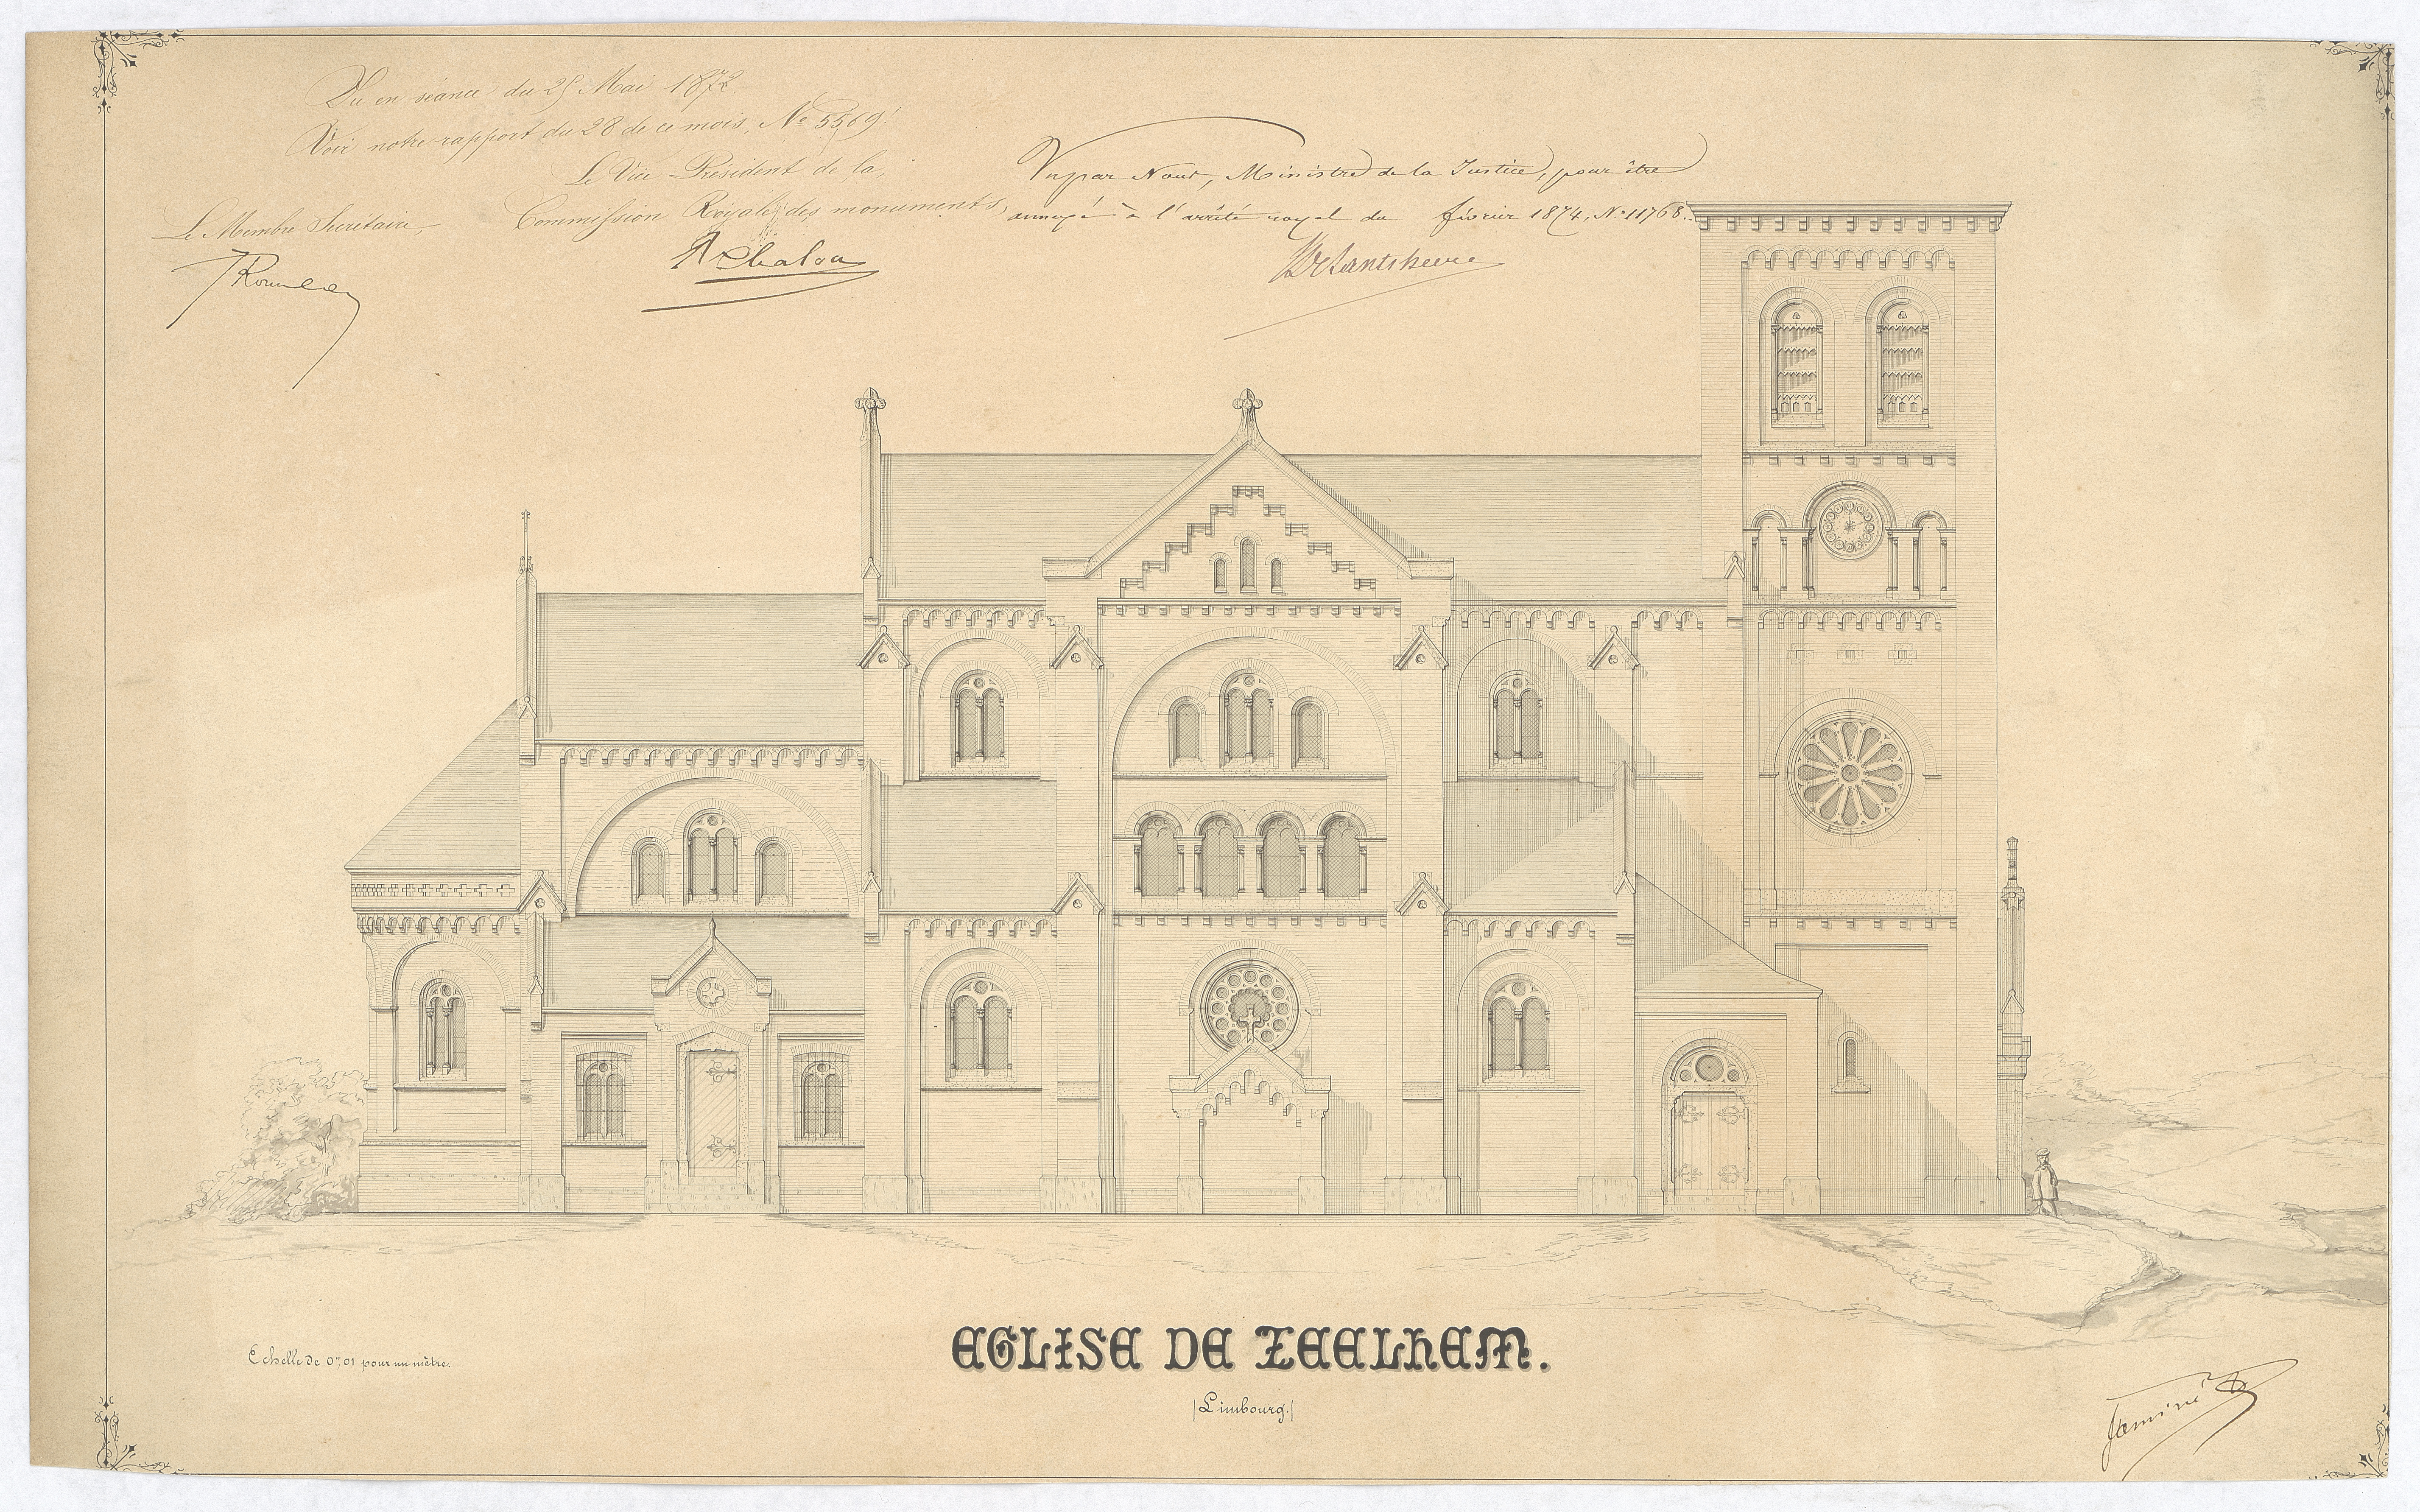 Vu en séance du 25 Mai 1872
Voir notre rapport du 28 de ce mois, No 5569.
Le Vice Président de la
Commission Royale des monuments,
Le Membre Secrétaire,
AChalon
Vu par Nous, Ministre de la Justice, pour être
annexé à l'arrêté royal du février 1874, No 11768.
Echelle de 0m,01 pour un mètre.
EGLISE DE ZEELHEM.
(Limbourg.)
Jaminé